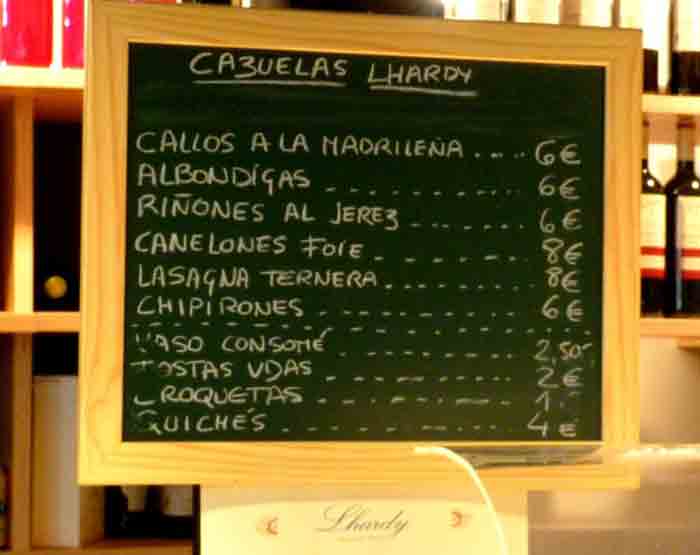 CAZUELAS LHARDY
CALLOS A LA MADRILEÑA .... 6€
ALBONDIGAS 6€
RIÑONES AL JEREZ 6€
CANELONES FOIE 8€
LASAGNA TERNERA 8€
CHIPIRONES 6€
VASO CONSOMÉ 2,50
TOSTAS VDAS 2€
CROQUETAS 1.
QUICHÉS 4€
Lhardy